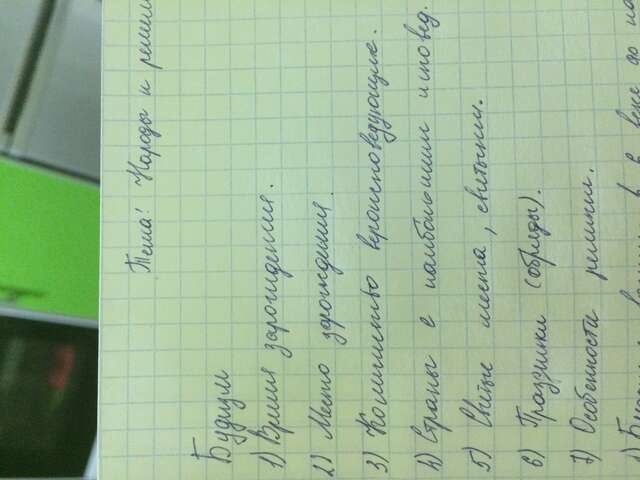 Тема: Народы и религии
Будизм
1) Время зарождения.
2) Место зарождения.
3) Количество вероисповедующих.
4) Страны с наибольшим исповед.
5) Святые места, святыни.
6) Праздники (обряды).
7) Особенности религии.
1) в 6 веке до